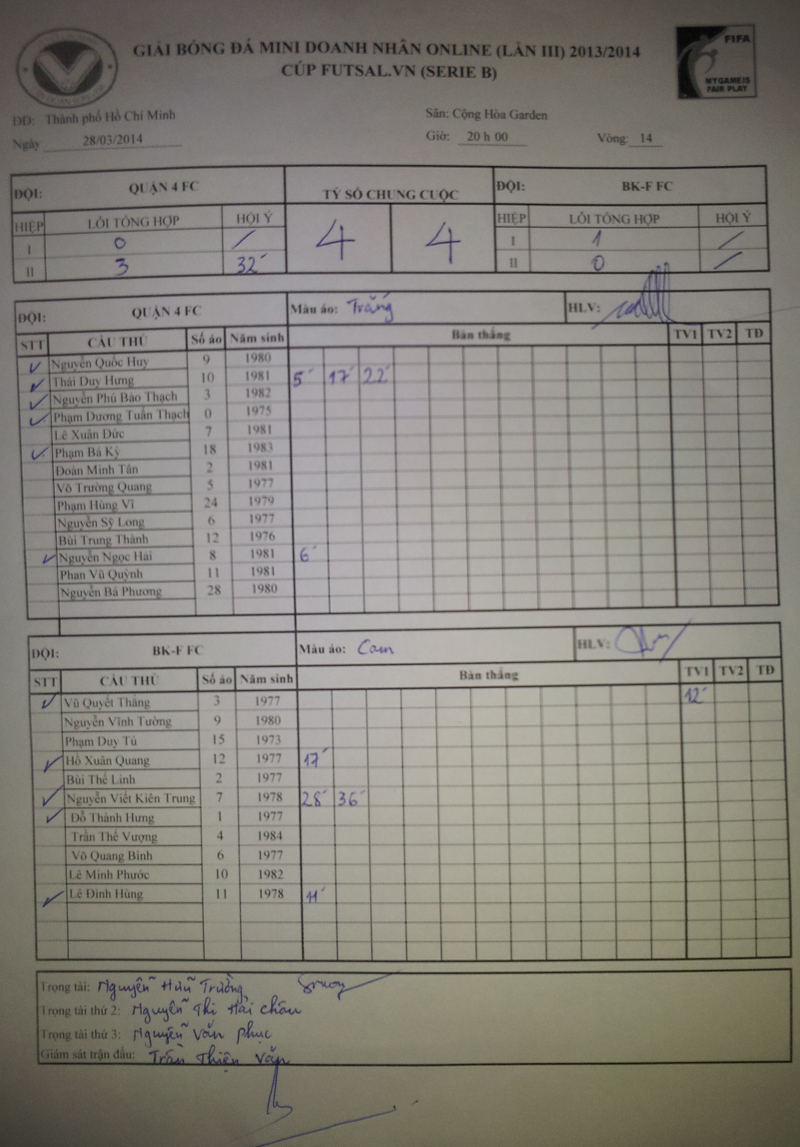 GIẢI BÓNG ĐÁ MINI DOANH NHÂN ONLINE (LẦN III) 2013/2014
CÚP FUTSAL.VN (SERIE B)
FIFA
MY GAME IS
FAIR PLAY
ĐĐ: Thành phố Hồ Chí Minh Sân: Cộng Hòa Garden
Ngày 28/03/2014 Giờ: 20 h 00 Vòng: 14
ĐỘI: QUẬN 4 FC TỶ SỐ CHUNG CUỘC ĐỘI: BK-F FC
HIỆP LỖI TỔNG HỢP HỘI Ý 4 4 HIỆP LỖI TỔNG HỢP HỘI Ý
I 0 / I 1 /
II 3 32' II 0 /
ĐỘI: QUẬN 4 FC Màu áo: Trắng HLV:
STT CẦU THỦ Số áo Năm sinh Bàn thắng TV1 TV2 TĐ
✓ Nguyễn Quốc Huy 9 1980
✓ Thái Duy Hưng 10 1981 5' 17' 22'
✓ Nguyễn Phú Bảo Thạch 3 1982
✓ Phạm Dương Tuấn Thạch 0 1975
Lê Xuân Đức 7 1981
✓ Phạm Bá Kỳ 18 1983
Đoàn Minh Tân 2 1981
Võ Trường Quang 5 1977
Phạm Hùng Vĩ 24 1979
Nguyễn Sỹ Long 6 1977
Bùi Trung Thành 12 1976
✓ Nguyễn Ngọc Hải 8 1981 6'
Phan Vũ Quỳnh 11 1981
Nguyễn Bá Phương 28 1980
ĐỘI: BK-F FC Màu áo: Cam HLV:
STT CẦU THỦ Số áo Năm sinh Bàn thắng TV1 TV2 TĐ
✓ Vũ Quyết Thắng 3 1977 12'
Nguyễn Vĩnh Tường 9 1980
Phạm Duy Tú 15 1973
✓ Hồ Xuân Quang 12 1977 17'
Bùi Thế Linh 2 1977
✓ Nguyễn Viết Kiên Trung 7 1978 28' 36'
✓ Đỗ Thành Hưng 1 1977
Trần Thế Vượng 4 1984
Võ Quang Bình 6 1977
Lê Minh Phước 10 1982
✓ Lê Đình Hùng 11 1978 11'
Trọng tài: Nguyễn Hữu Trường
Trọng tài thứ 2: Nguyễn Thị Hải Châu
Trọng tài thứ 3: Nguyễn Văn Phục
Giám sát trận đấu: Trần Thiện Văn